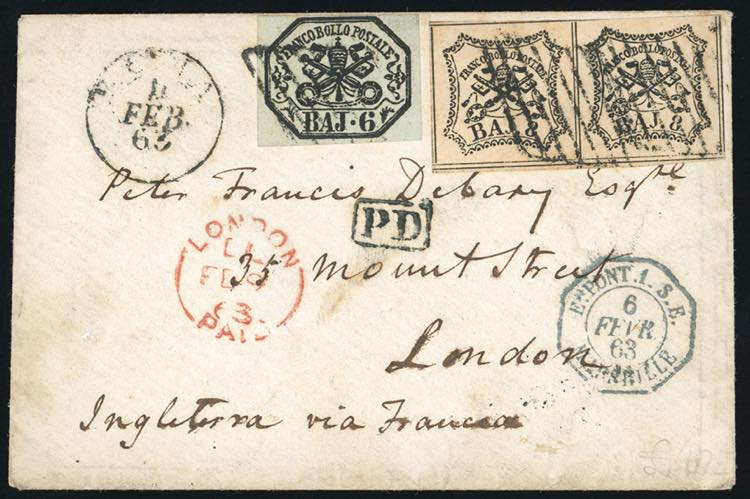 FRANCO BOLLO POSTALE
BAJ·6
FRANCO BOLLO POSTALE
BAJ. 8
FRANCO BOLLO POSTALE
BAJ. 8
FEB.
Peter Francis Debary Esqre
PD
LONDON
FE
63
PAID
35 Mount Street
Et PONT. 1. S. E.
6
FEVR
63
MARSEILLE
London
Ingleterra via Francia